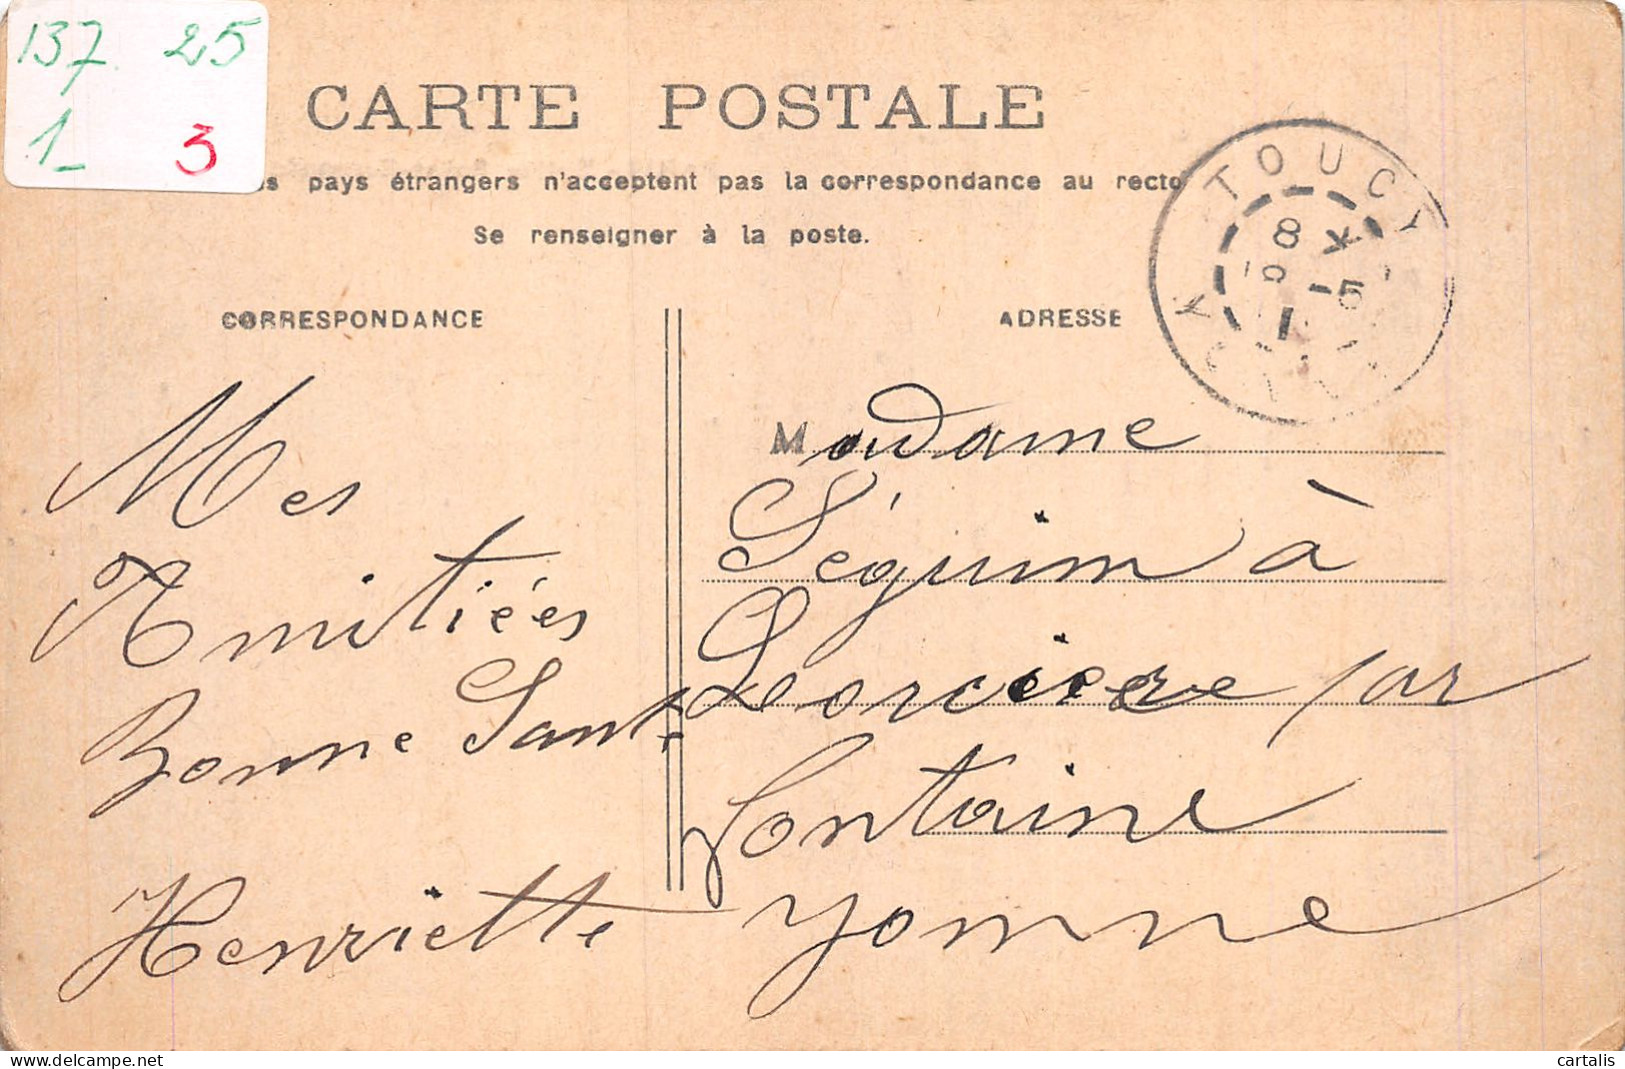 137. 25
1_ 3
CARTE POSTALE
pays étrangers n'acceptent pas la correspondance au recto
Se renseigner à la poste.
TOUCY
8 K
-5
CORRESPONDANCE
ADRESSE
Mes
Amitiées
Bonne Santé
Henriette
Madame
Séguin à
Sorcière par
fontaine
Yonne
cartalis
delcampe.net